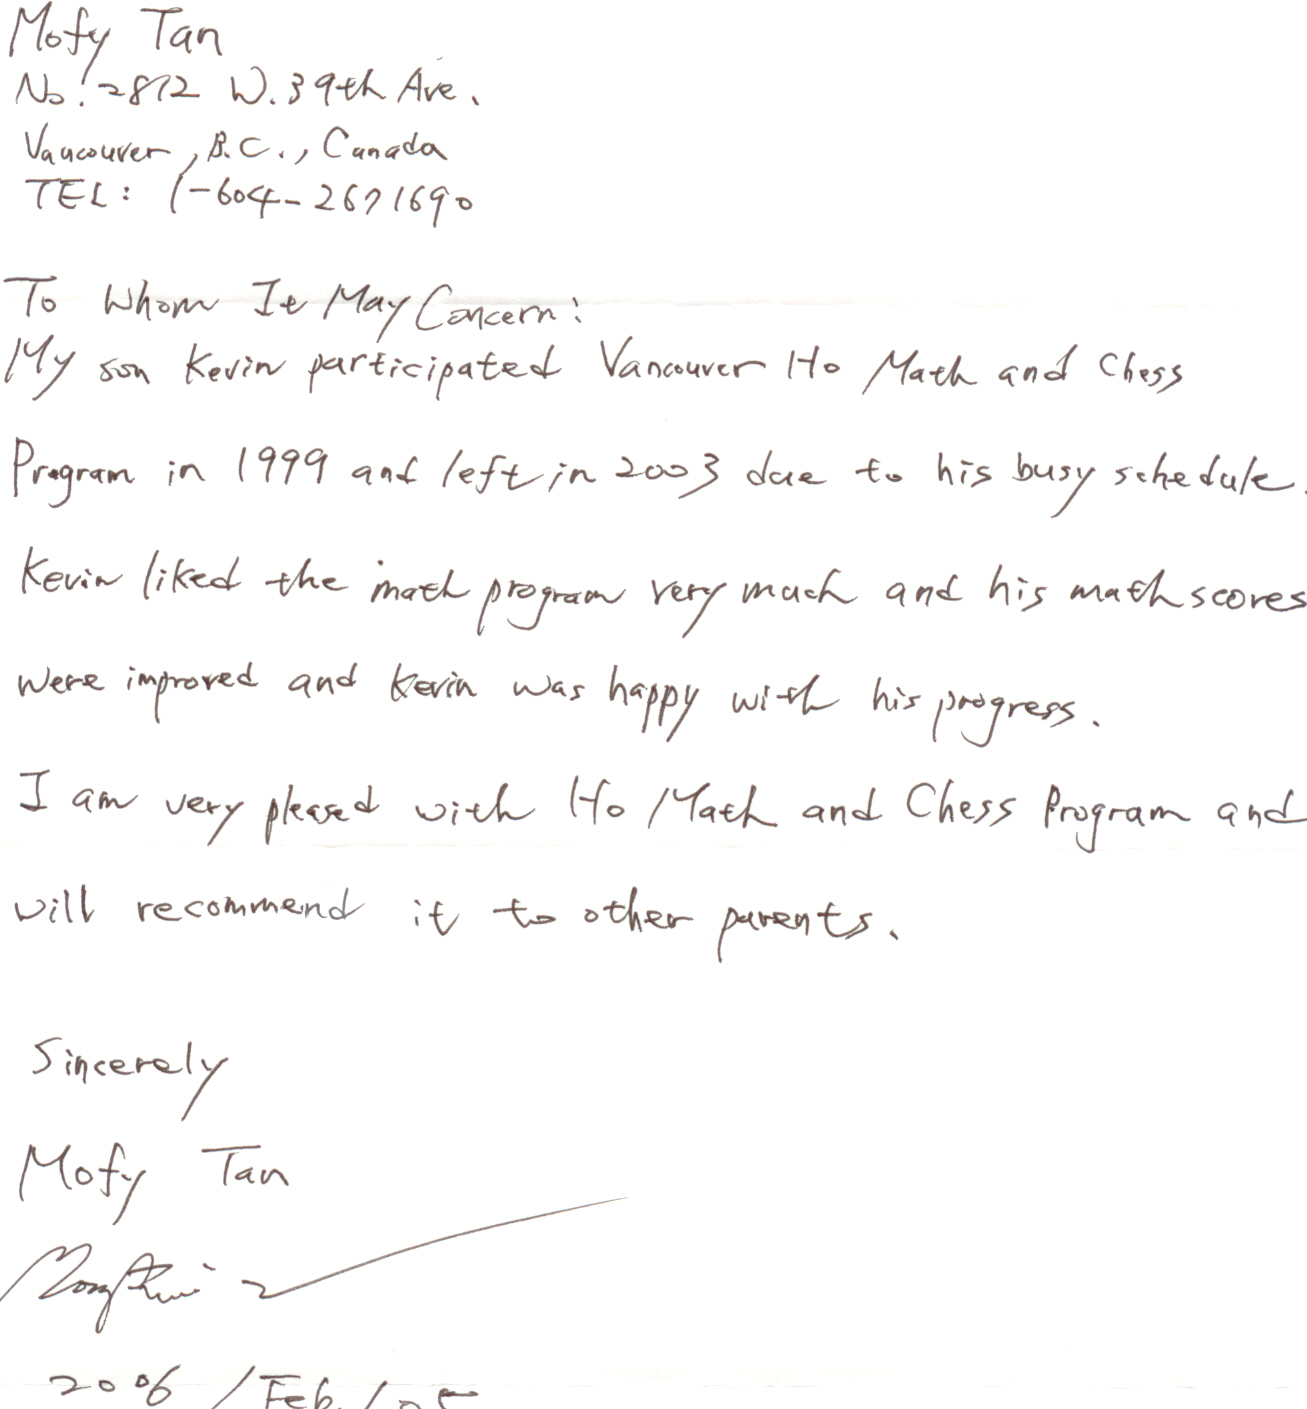 Mofy Tan
No. 2812 W. 39th Ave.
Vancouver, B.C., Canada
TEL: 1-604-2671690
To Whom It May Concern:
My son Kevin participated Vancouver Ho Math and Chess
Program in 1999 and left in 2003 due to his busy schedule.
Kevin liked the math program very much and his math scores
were improved and Kevin was happy with his progress.
I am very pleased with Ho Math and Chess Program and
will recommend it to other parents.
Sincerely
Mofy Tan
2006 / Feb. / 05